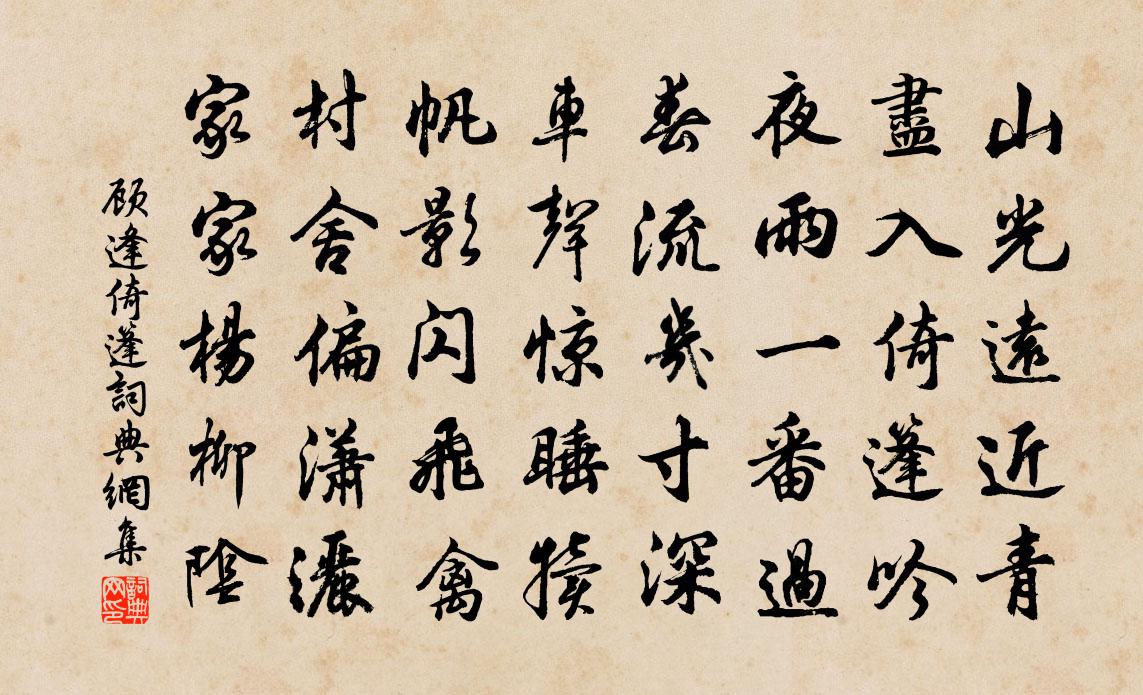 山光遠近青
盡入倚篷吟
夜雨一番過
春流幾寸深
車聲惊睡犢
帆影闪飛禽
村舍偏瀟灑
家家楊柳陰
顾逢倚篷詞典網集
詞典网印